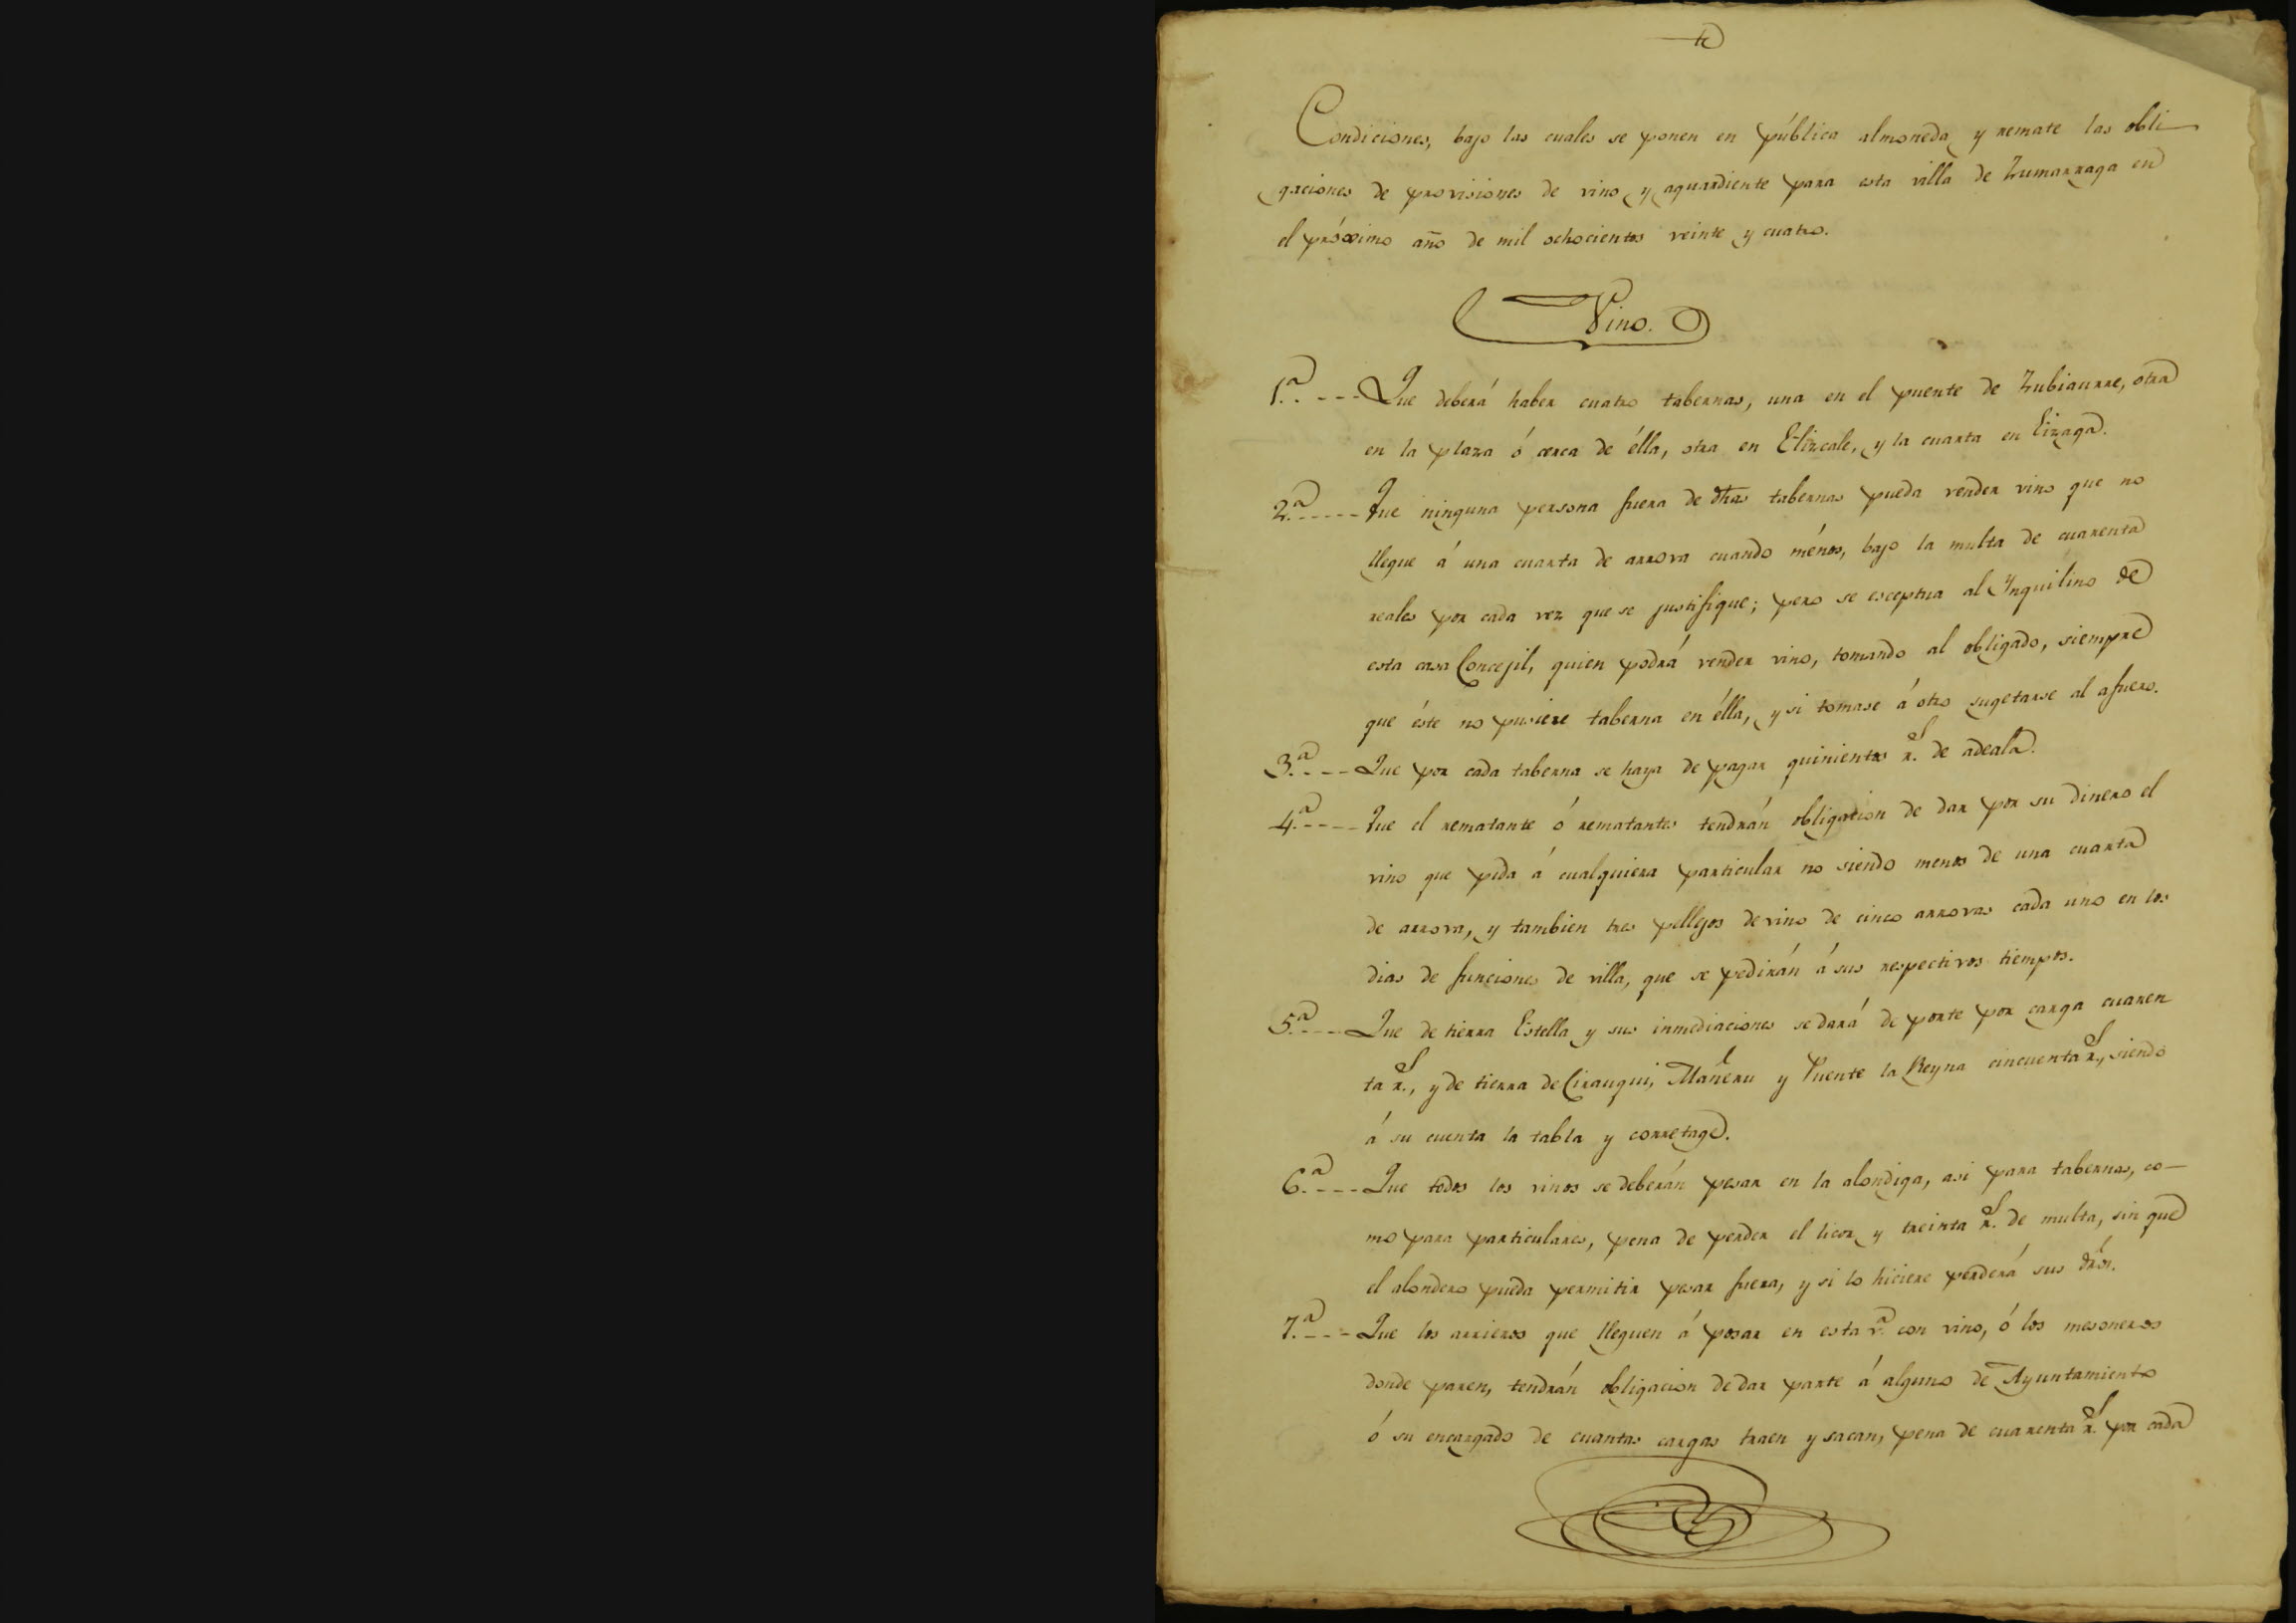 Condiciones, bajo las cuales se ponen en pública almoneda y remate las obli-
gaciones de provisiones de vino y aguardiente para esta villa de Zumarraga en
el próximo año de mil ochocientos veinte y cuatro.
Vino.
1.ª ---Que deberá haber cuatro tabernas, una en el puente de Zubiaurre, otra
en la plaza ó cerca de élla, otra en Elizcale, y la cuarta en Eizaga.
2.ª-----Que ninguna persona fuera de dhas tabernas pueda vender vino que no
llegue á una cuarta de arrova cuando ménos, bajo la multa de cuarenta
reales por cada vez que se justifique; pero se esceptua al Ynquilino de
esta casa Concejil, quien podrá vender vino, tomando al obligado, siempre
que éste no pusiere taberna en élla, y si tomase á otro sugetarse al afuero.
3.ª----Que por cada taberna se haya de pagar quinientos r.s de adeala.
4.ª-----Que el rematante ó rematantes tendrán obligacion de dar por su dinero el
vino que pida á cualquiera particular no siendo menos de una cuarta
de arrova, y tambien tres pellejos de vino de cinco arrovas cada uno en los
dias de funciones de villa, que se pedirán á sus respectivos tiempos.
5.ª----Que de tierra Estella y sus inmediaciones se dará de porte por carga cuaren
ta r.s, y de tierra de Cirauqui, Mañeru y Puente la Reyna cincuenta r.s, siendo
á su cuenta la tabla y corretage.
6.ª----Que todos los vinos se deberán pesar en la alondiga, asi para tabernas, co-
mo para particulares, pena de perder el licor y treinta r.s de multa, sin que
el alondero pueda permitir pesar fuera, y si lo hiciere perderá sus dros.
7.ª---Que los arrieros que lleguen á posar en esta v.ª con vino, ó los mesoneros
donde paren, tendrán obligacion de dar parte á alguno de Ayuntamiento
ó su encargado de cuantas cargas traen y sacan, pena de cuarenta r.s por cada